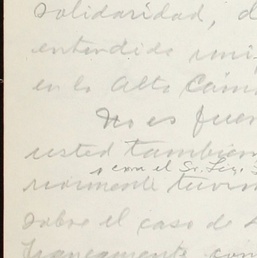 solidaridad, d
entendido uni
en la Alta Cám
No es fuer
usted tambien
con el Sr. Leg.
riormente tuvim
sobre el caso de
francamente con